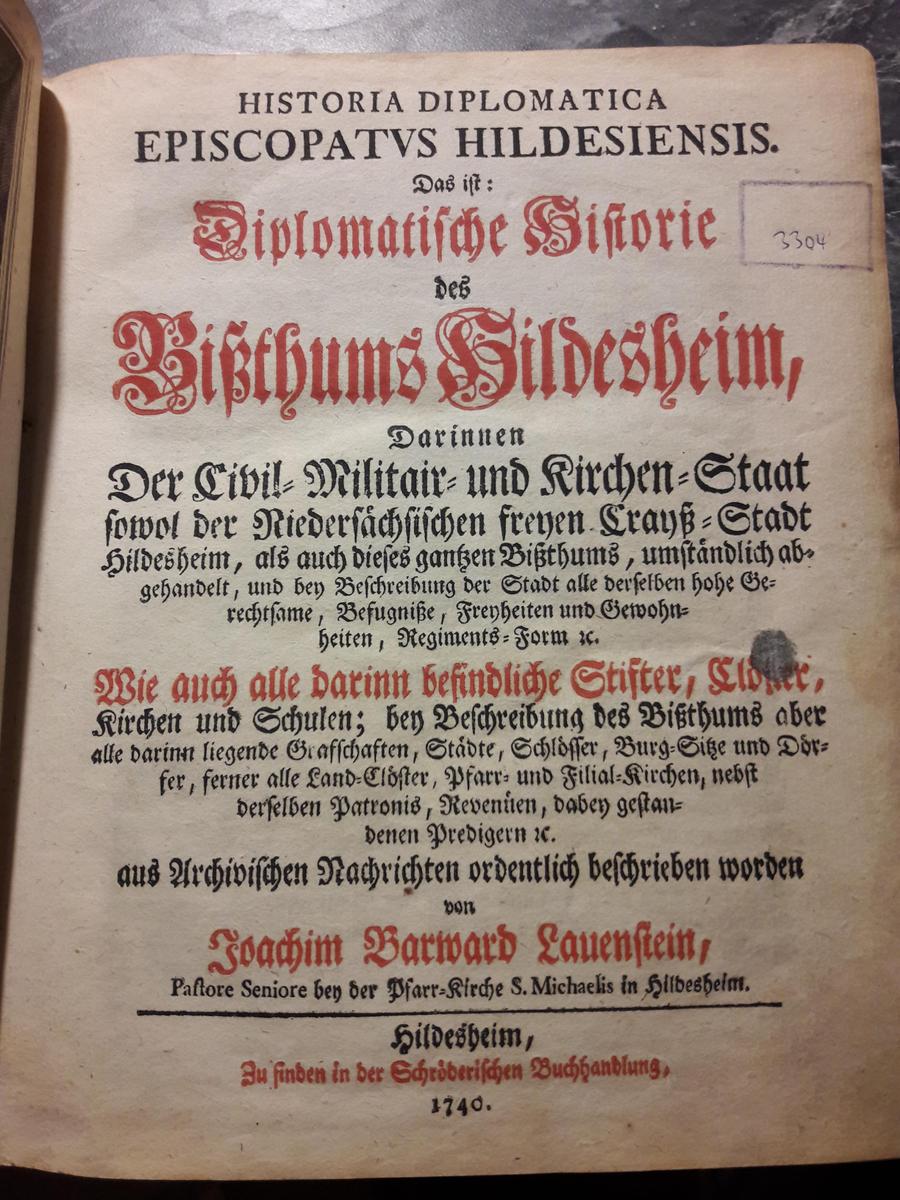 HISTORIA DIPLOMATICA
EPISCOPATVS HILDESIENSIS.
Das ist:
Diplomatische Historie
3304
des
Bißthums Hildesheim,
Darinnen
Der Civil- Militair- und Kirchen-Staat
sowol der Niedersächsischen freyen Crayß-Stadt
Hildesheim, als auch dieses gantzen Bißthums, umständlich ab-
gehandelt, und bey Beschreibung der Stadt alle derselben hohe Ge-
rechtsame, Befugniße, Freyheiten und Gewohn-
heiten, Regiments-Form ꝛc.
Wie auch alle darinn befindliche Stifter, Clöster,
Kirchen und Schulen; bey Beschreibung des Bißthums aber
alle darinn liegende Grafschaften, Städte, Schlösser, Burg-Sitze und Dör-
fer, ferner alle Land-Clöster, Pfarr- und Filial-Kirchen, nebst
derselben Patronis, Revenüen, dabey gestan-
denen Predigern ꝛc.
aus Archivischen Nachrichten ordentlich beschrieben worden
von
Joachim Barward Lauenstein,
Pastore Seniore bey der Pfarr-Kirche S. Michaelis in Hildesheim.
Hildesheim,
Zu finden in der Schröderischen Buchhandlung,
1740.